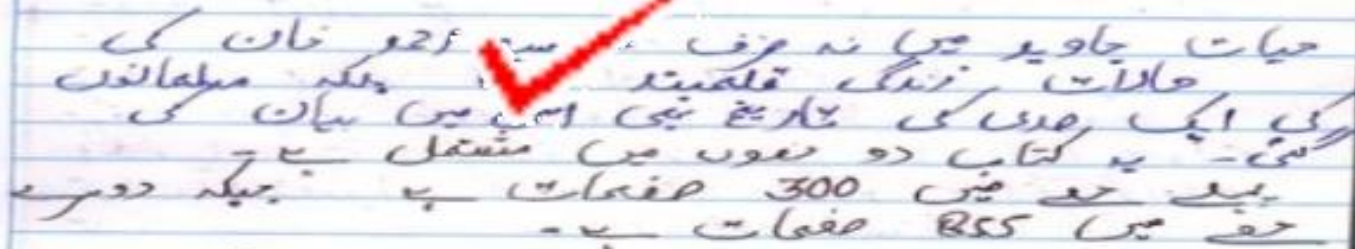 حیات جاوید میں نہ صرف سید احمد خان کی
حالات زندگی قلمبند بلکہ مسلمانوں
کی ایک صدی کی تاریخ بھی اس میں بیان کی
گئی۔ یہ کتاب دو حصوں میں مشتمل ہے۔
پہلے حصے میں 300 صفحات ہے جبکہ دوسرے
حصے میں 855 صفحات ہے۔